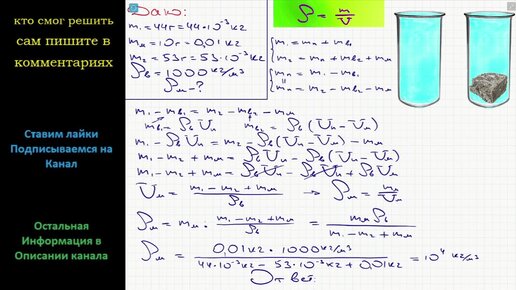 кто смог решить
сам пишите в
комментариях
Ставим лайки
Подписываемся на
Канал
Остальная
Информация в
Описании канала
Дано:
m₁=44г=44·10⁻³кг
mм=10г=0,01кг
m₂=53г=53·10⁻³кг
ρв=1000кг/м³
ρм-?
ρ=m/V
{m₁=mп+mв₁
{m₂=mп+mв₂+mм
{mп=m₁-mв₁
{mп=m₂-mв₂-mм
m₁-mв₁=m₂-mв₂-mм
mв₁=ρвVп mв₂=ρв(Vп-Vм)
m₁-ρвVп=m₂-ρв(Vп-Vм)-mм
m₁-m₂+mм=ρвVп-ρв(Vп-Vм)
m₁-m₂+mм=ρвVп-ρвVп+ρвVм
Vм=(m₁-m₂+mм)/ρв → ρм=mм/Vм
ρм=mм·(m₁-m₂+mм)/ρв=mмρв/(m₁-m₂+mм)
ρм=(0,01кг·1000кг/м³)/(44·10⁻³кг-53·10⁻³кг+0,01кг)=10⁴кг/м³
Ответ: